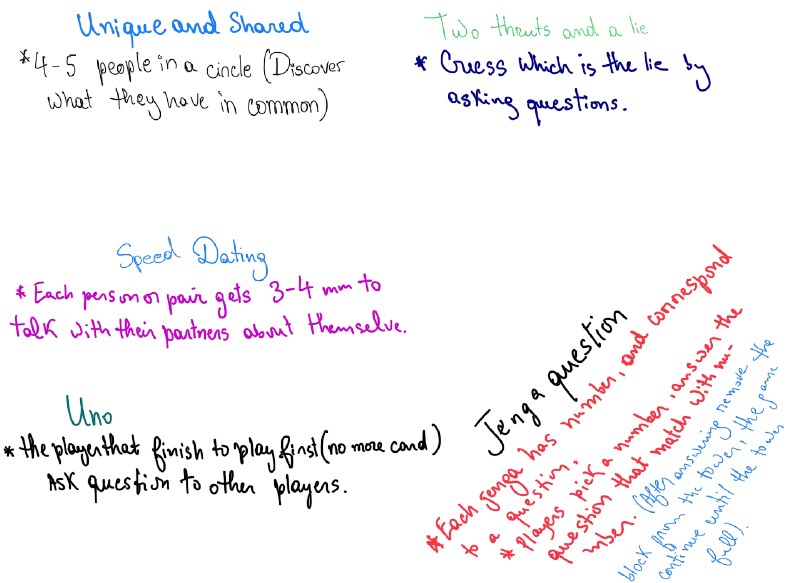 Unique and Shared
*4-5 people in a circle (Discover
what they have in common)
Two thruts and a lie
* Guess which is the lie by
asking questions.
Speed Dating
* Each person or pair gets 3-4 mm to
talk with their partners about themselve.
Uno
* the player that finish to play first (no more card)
Ask question to other players.
Jenga question
* Each jenga has number, and correspond
to a question.
* Players pick a number, answer the
question that match with nu-
mber. (After answering remove the
block from the tower, the game
continue until the tower
fall).